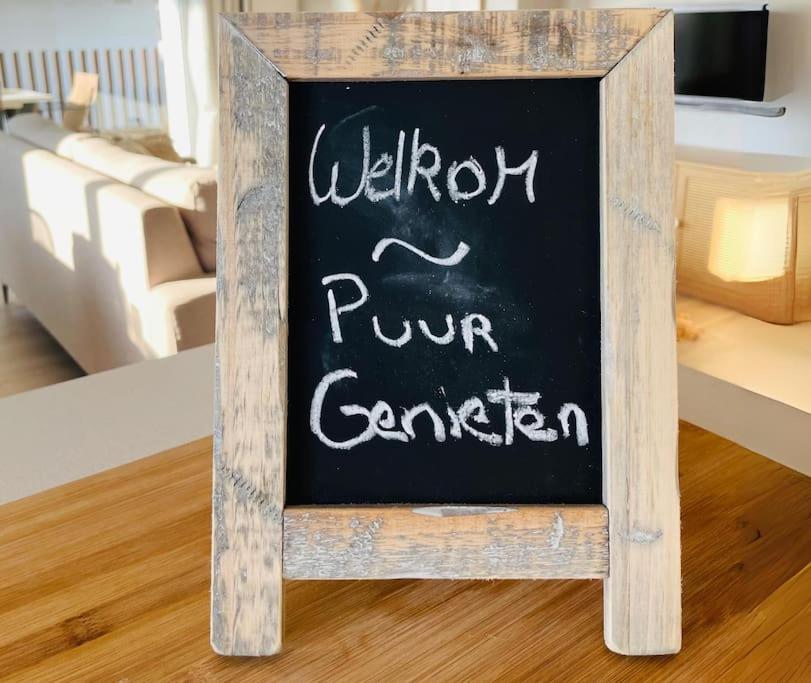 Welkom
~
Puur
Genieten